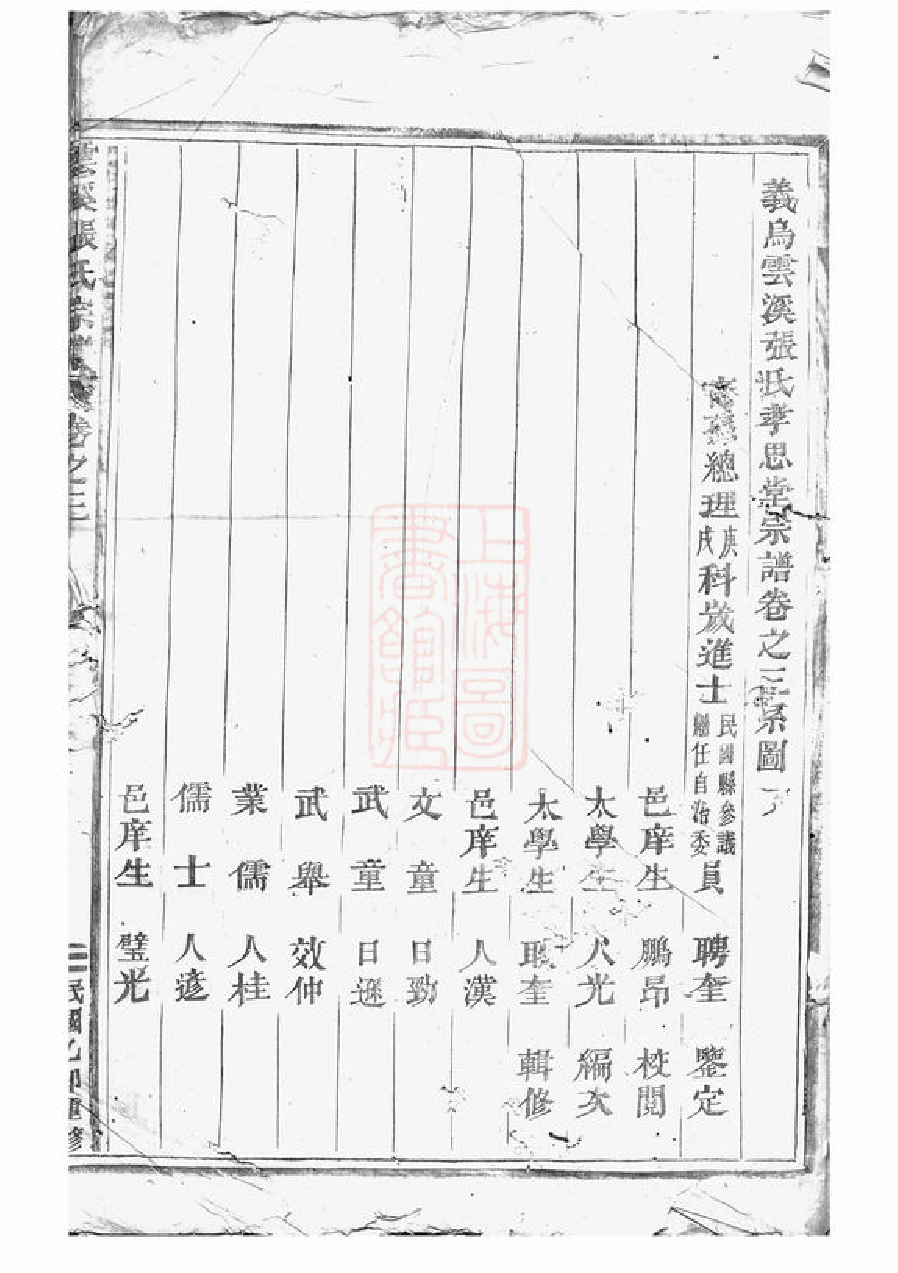 義烏雲溪張氏孝思堂宗譜卷之三系圖下
裔孫總理庚戌科歲進士民國縣參議繼任自治委員 聘奎 鑒定
邑庠生 鵬昂 校閱
太學生 人光 編次
太學生 聚奎 輯修
邑庠生 人漢
文童 日勁
武童 日遜
武舉 效仲
業儒 人桂
儒士 人遮
邑庠生 璧光
雲溪張氏宗譜 卷之三 民國乙卯重修
上海圖書館藏